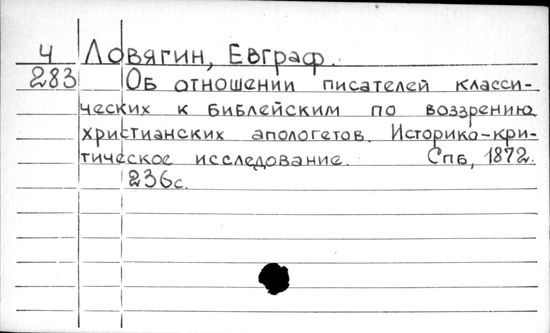 Ч Ловягин, Евграф.
283 Об отношении писателей класси-
ческих к библейским по воззрению
христианских апологетов. Историко-кри-
тическое исследование. Спб, 1872.
236с.